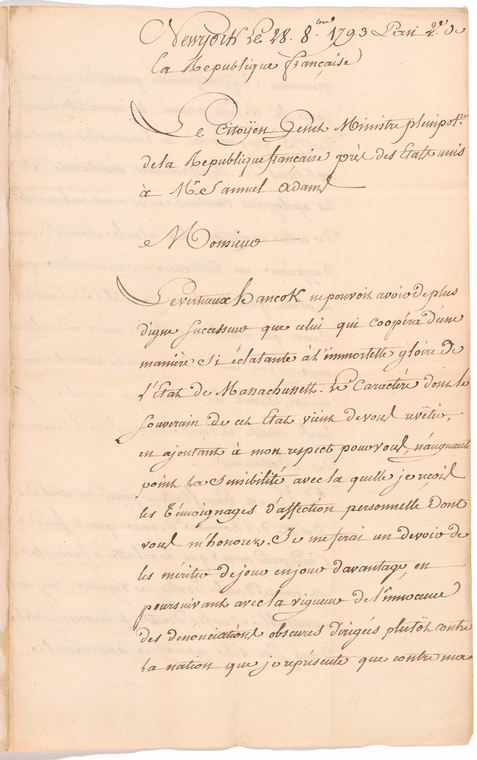 Newyork Le 28. 8.bre 1793 L'an 2.e de
la Republique française
Le Citoÿen Genet Ministre plenipot.re
de la Republique française près des Etats unis
à M.r Samuel Adams
Monsieur
Le vertueux hancok ne pouvoit avoir de plus
digne successeur que celui qui coopéra d'une
manière si éclatante à l'immortelle gloire de
l'Etat de Massachusett. Le Caractère dont le
souverain de cet Etat vient de vous revêtir,
en ajoutant à mon respect pour vous, n'augmente
point la sensibilité avec la quelle je reçois
les témoignages d'affection personnelle dont
vous m'honorez. Je me ferai un devoir de
les mériter de jour en jour davantage, en
poursuivant avec la vigueur de l'innocence
des denonciations obscures dirigées plutôt contre
la nation que je représente que contre moi